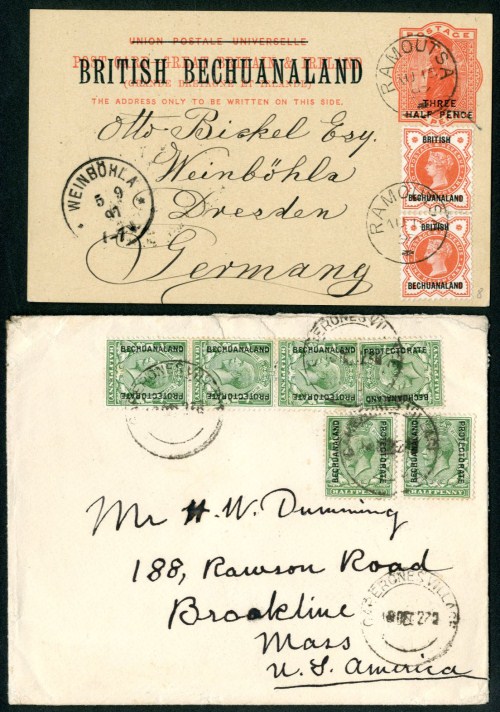 UNION POSTALE UNIVERSELLE
POST CARD - GREAT BRITAIN & IRELAND
BRITISH BECHUANALAND
(GRANDE BRETAGNE ET IRLANDE)
THE ADDRESS ONLY TO BE WRITTEN ON THIS SIDE.
POSTAGE
THREE
HALF PENCE
RAMOUTSA
Otto Bickel Esq.
Weinböhla
Dresden
Germany
WEINBÖHLA
5 9
97
1-7
BRITISH
BECHUANALAND
RAMOUTSA
BRITISH
BECHUANALAND
8
BECHUANALAND
PROTECTORATE
BECHUANALAND
PROTECTORATE
BECHUANALAND
PROTECTORATE
BECHUANALAND
PROTECTORATE
BECHUANALAND
PROTECTORATE
HALFPENNY
BECHUANALAND
PROTECTORATE
HALFPENNY
Mr H. W. Dumming
188, Rawson Road
Brookline
Mass
U. S. America
VILLAGE
DEC 27